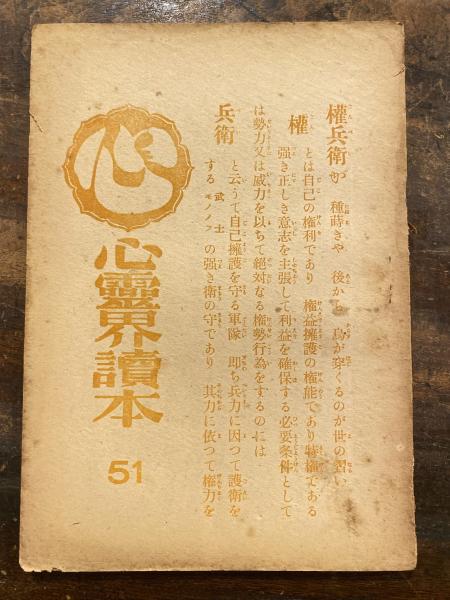 權兵衛が 種蒔きや 後から 鳥が穿くるのが世の習い
權
とは自己の権利であり 権益擁護の権能であり特権である
强き正しき意志を主張して利益を確保する必要条件として
は勢力又は威力を以ちて絶対なる権勢行為をするのには
兵衛
と云うて自己擁護を守る軍隊 即ち兵力に因つて護衛を
する 武士 の强き衛の守であり 其力に依つて権力を
モノノフ
心
心靈界讀本
51